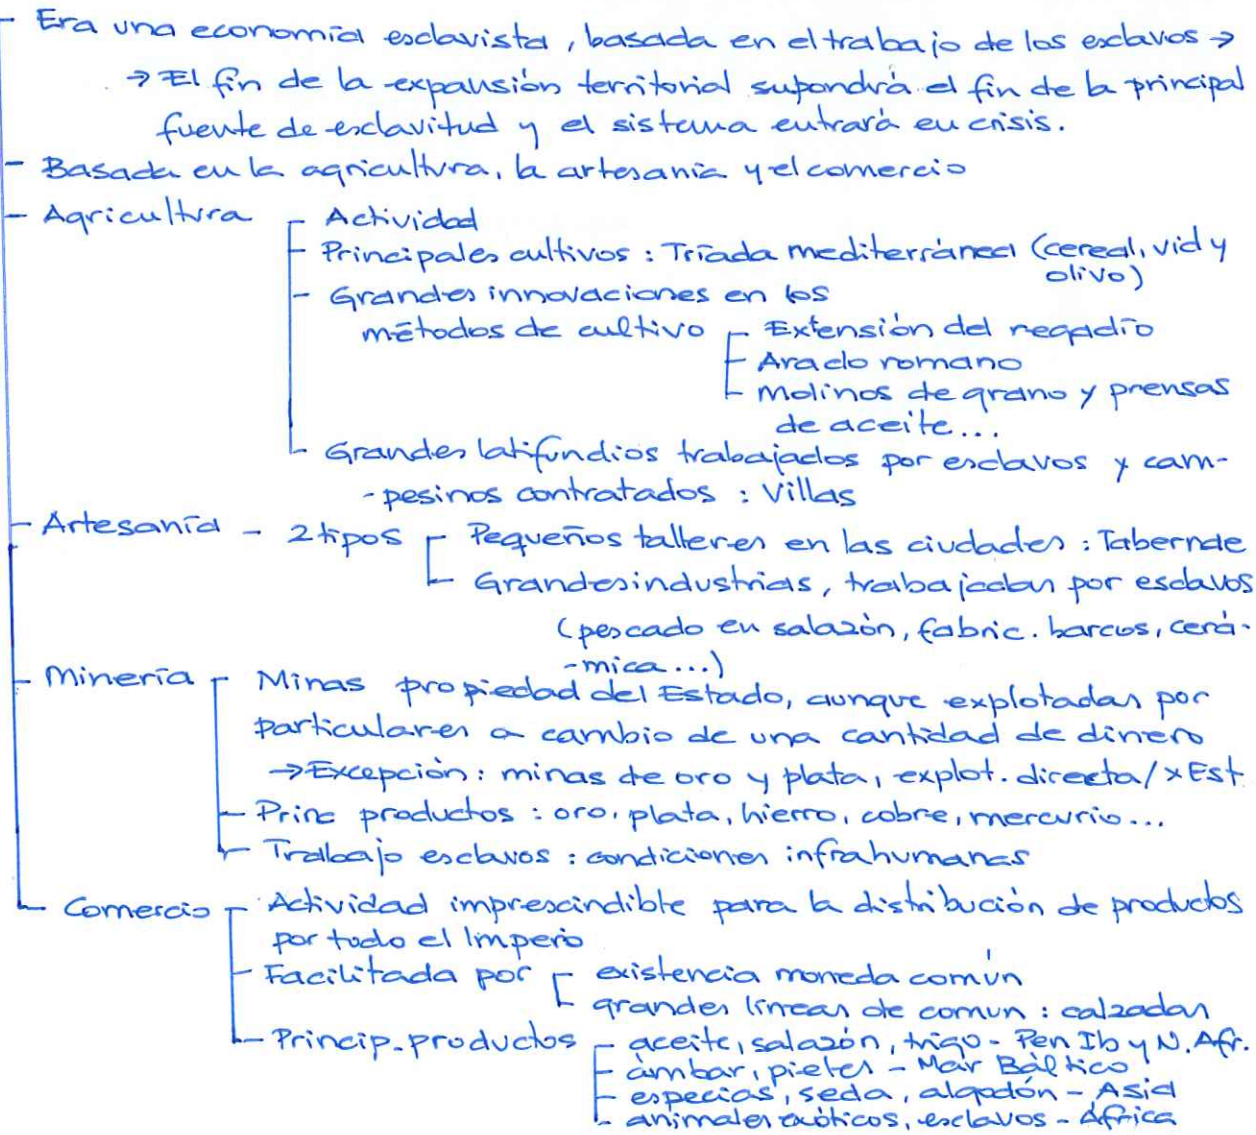 - Era una economía esclavista, basada en el trabajo de los esclavos →
→ El fin de la expansión territorial supondrá el fin de la principal
fuente de esclavitud y el sistema entrará en crisis.
- Basada en la agricultura, la artesanía y el comercio
- Agricultura
- Actividad
- Principales cultivos : Tríada mediterránea (cereal, vid y
olivo)
- Grandes innovaciones en los
métodos de cultivo
- Extensión del regadío
- Arado romano
- Molinos de grano y prensas
de aceite...
- Grandes latifundios trabajados por esclavos y cam-
-pesinos contratados : Villas
- Artesanía - 2 tipos
- Pequeños talleres en las ciudades : Tabernae
- Grandes industrias, trabajadas por esclavos
(pescado en salazón, fabric. barcos, cerá-
-mica...)
- Minería
- Minas propiedad del Estado, aunque explotadas por
particulares a cambio de una cantidad de dinero
→ Excepción : minas de oro y plata, explot. directa/ x Est.
- Princ productos : oro, plata, hierro, cobre, mercurio...
- Trabajo esclavos : condiciones infrahumanas
- Comercio
- Actividad imprescindible para la distribución de productos
por todo el Imperio
- Facilitada por
- existencia moneda común
- grandes líneas de comun : calzadas
- Princip. productos
- aceite, salazón, trigo - Pen Ib y N. Afr.
- ámbar, pieles - Mar Báltico
- especias, seda, algodón - Asia
- animales exóticos, esclavos - África